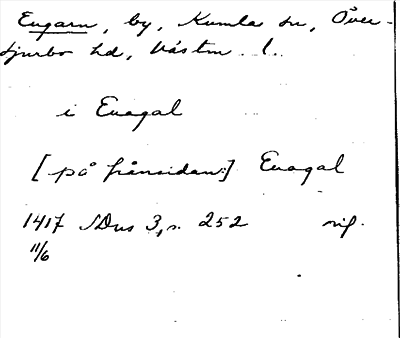 Engarn, by, Kumla sn, Över-
tjurbo hd, Västm. l.
i Enagal
[på frånsidan:] Enagal
1417 SDns 3, s. 252 orig.
11/6